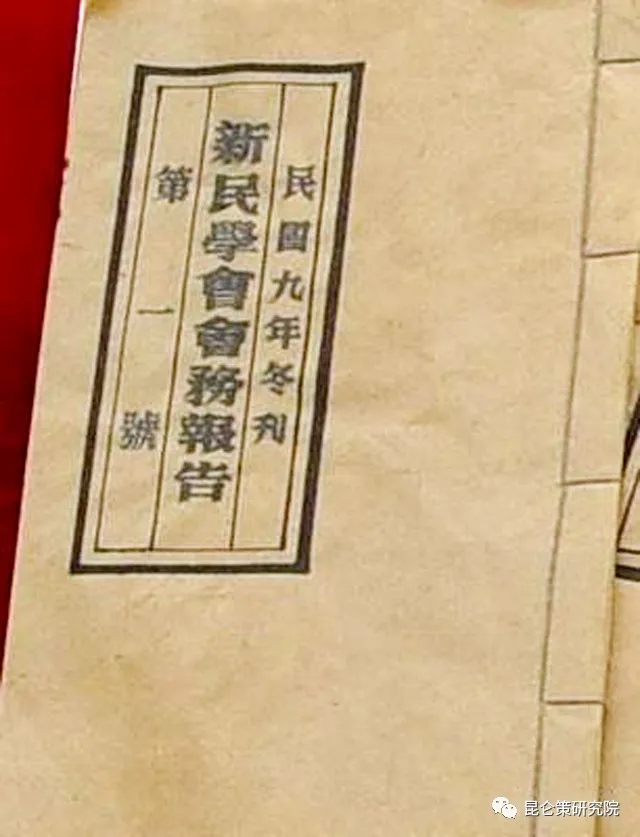 民國九年冬刊
新民學會會務報告
第一號
昆仑策研究院